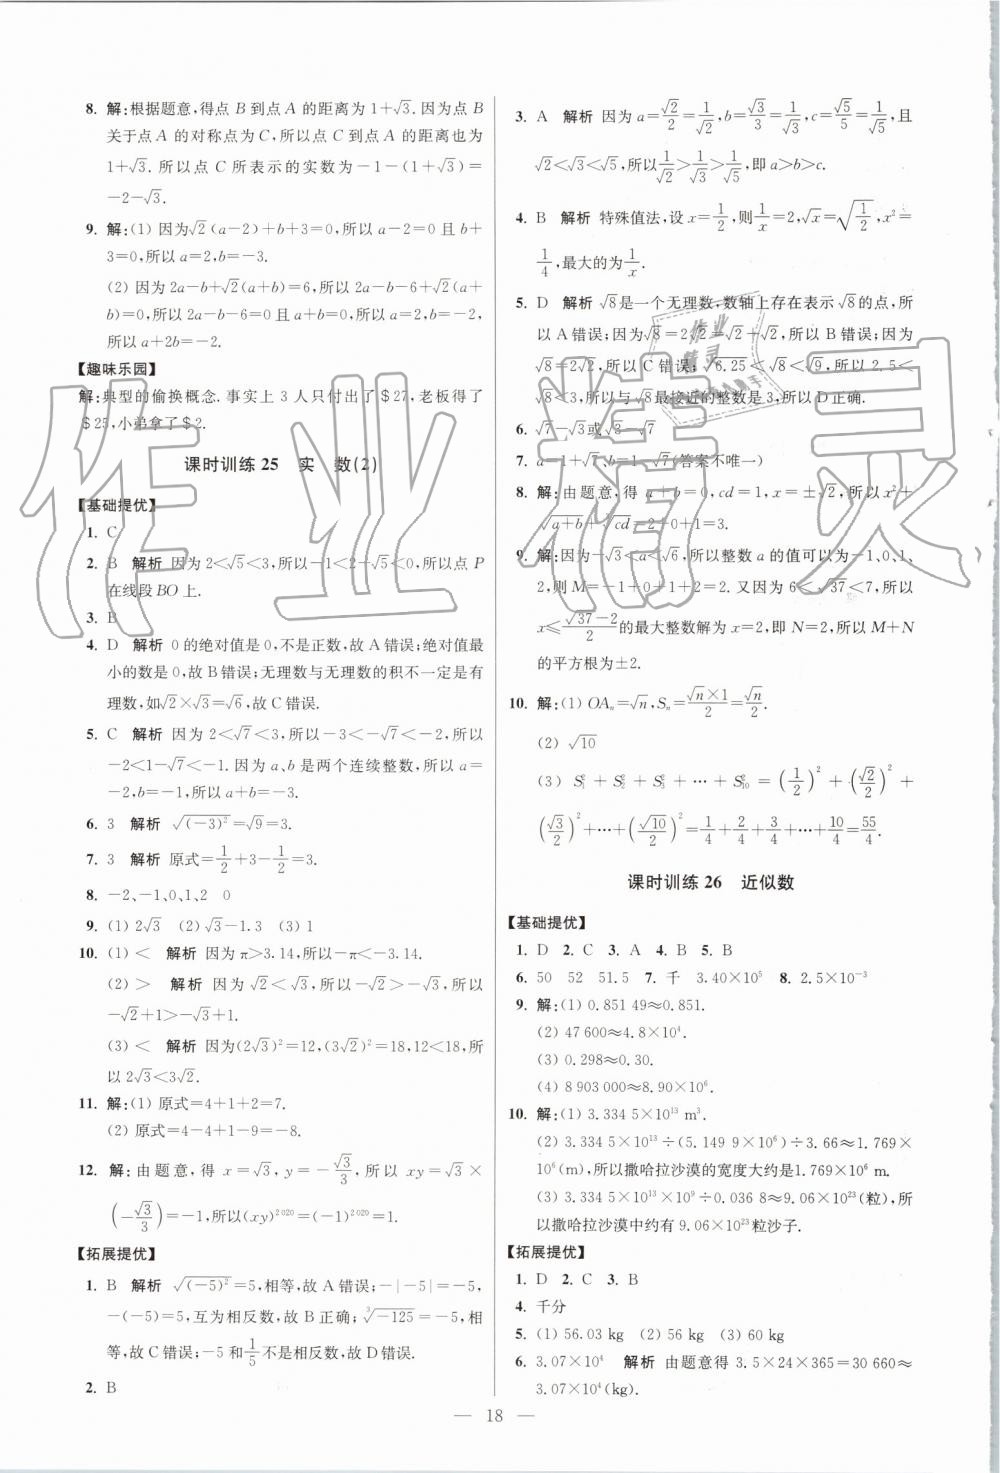 8. 解:根据题意,得点 B 到点 A 的距离为 1+√3. 因为点 B
关于点 A 的对称点为 C,所以点 C 到点 A 的距离也为
1+√3. 所以点 C 所表示的实数为 -1-(1+√3)=
-2-√3.
9. 解:(1) 因为√2(a-2)+b+3=0,所以 a-2=0 且 b+
3=0,所以 a=2,b=-3.
(2) 因为 2a-b+√2(a+b)=6,所以 2a-b-6+√2(a+
b)=0,所以 2a-b-6=0 且 a+b=0,所以 a=2,b=-2,所
以 a+2b=-2.
【趣味乐园】
解:典型的偷换概念. 事实上 3 人只付出了 $27,老板得了
$25,小弟拿了 $2.
课时训练 25 实 数(2)
【基础提优】
1. C
2. B 解析 因为 2<√5<3,所以-1<2-√5<0,所以点 P
在线段 BO 上.
3. B
4. D 解析 0 的绝对值是 0,不是正数,故 A 错误;绝对值最
小的数是 0,故 B 错误;无理数与无理数的积不一定是有
理数,如√2×√3=√6,故 C 错误.
5. C 解析 因为 2<√7<3,所以-3<-√7<-2,所以
-2<1-√7<-1. 因为 a、b 是两个连续整数,所以 a=
-2,b=-1,所以 a+b=-3.
6. 3 解析 √(-3)²=√9=3.
7. 3 解析 原式=1/2+3-1/2=3.
8. -2、-1、0、1、2 0
9. (1) 2√3 (2) √3-1.3 (3) 1
10. (1) < 解析 因为 π>3.14,所以-π<-3.14.
(2) > 解析 因为√2<√3,所以-√2>-√3,所以
-√2+1>-√3+1.
(3) < 解析 因为(2√3)²=12,(3√2)²=18,12<18,所
以 2√3<3√2.
11. 解:(1) 原式=4+1+2=7.
(2) 原式=4-4-1-9+0=-8.
12. 解:由题意,得 x=√3,y=-√3/3,所以 xy=√3×
(-√3/3)=-1,所以(xy)²⁰²⁰=(-1)²⁰²⁰=1.
【拓展提优】
1. B 解析 √(-5)²=5,相等,故 A 错误;-|-5|=-5,
-(-5)=5,互为相反数,故 B 正确;³√-125=-5,相
等,故 C 错误;-5 和1/5不是相反数,故 D 错误.
2. B
3. A 解析 因为 a=√2/2=1/√2,b=√3/3=1/√3,c=√5/5=1/√5,且
√2<√3<√5,所以1/√2>1/√3>1/√5,即 a>b>c.
4. B 解析 特殊值法,设 x=1/2,则1/x=2,√x=√(1/2),x²=
1/4,最大的为1/x.
5. D 解析 √8是一个无理数,数轴上存在表示√8的点,所
以 A 错误;因为√8=2√2=√2+√2,所以 B 错误;因为
√8=2√2,所以 C 错误;√6.25<√8<√9,所以 2.5<
√8<3,所以与√8最接近的整数是 3,所以 D 正确.
6. √7-√3或√3-√7
7. a-1+√7、b=1-√7(答案不唯一)
8. 解:由题意,得 a+b=0,cd=1,x=±√2,所以 x²+
√a+b+³√cd=2+0+1=3.
9. 解:因为-√3<a<√6,所以整数 a 的值可以为-1、0、1、
2,则 M=-1+0+1+2=2. 又因为 6<√37<7,所以
x≤(√37-2)/2的最大整数解为 x=2,即 N=2,所以 M+N
的平方根为±2.
10. 解:(1) OAₙ=√n,Sₙ=(√n×1)/2=√n/2.
(2) √10
(3) S₁²+S₂²+S₃²+…+S₁₀²=(1/2)²+(√2/2)²+
(√3/2)²+…+(√10/2)²=1/4+2/4+3/4+…+10/4=55/4.
课时训练 26 近似数
【基础提优】
1. D 2. C 3. A 4. B 5. B
6. 50 52 51.5 7. 千 3.40×10⁵ 8. 2.5×10⁻³
9. 解:(1) 0.851 49≈0.851.
(2) 47 600≈4.8×10⁴.
(3) 0.298≈0.30.
(4) 8 903 000≈8.90×10⁶.
10. 解:(1) 3.334 5×10¹³ m³.
(2) 3.334 5×10¹³÷(5.149 9×10⁶)÷3.66≈1.769×
10⁶(m),所以撒哈拉沙漠的宽度大约是1.769×10⁶ m.
(3) 3.334 5×10¹³×10⁹÷0.036 8≈9.06×10²³(粒),所
以撒哈拉沙漠中约有9.06×10²³粒沙子.
【拓展提优】
1. D 2. C 3. B
4. 千分
5. (1) 56.03 kg (2) 56 kg (3) 60 kg
6. 3.07×10⁴ 解析 由题意得 3.5×24×365=30 660≈
3.07×10⁴(kg).
— 18 —
作业精灵